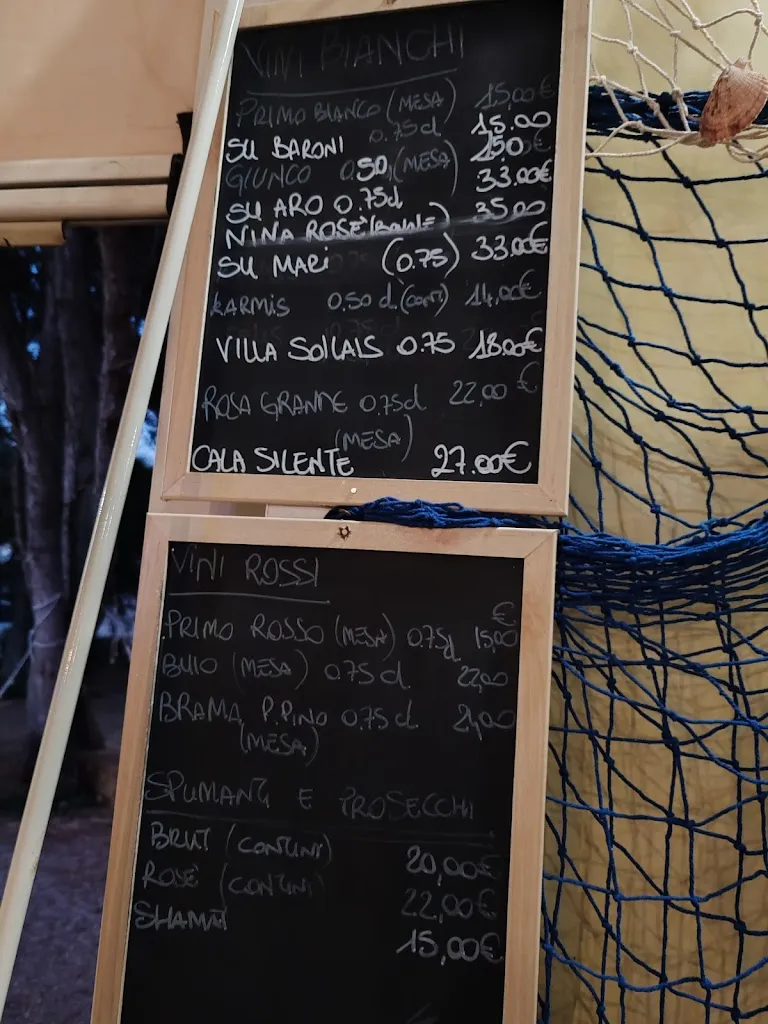 VINI BIANCHI
PRIMO BIANCO (MESA) 15,00€
0.75cl
SU BARONI 15.00
GIUNCO 0.50 (MESA) 15,0 €
SU ARO 0.75cl 33.00€
NINA ROSÈ 35.00
SU MARI (0.75) 33.00€
KARMIS 0.50 cl (CONT) 14,00€
VILLA SOLAIS 0.75 18.00€
ROSA GRANDE 0.75cl 22,00 €
(MESA)
CALA SILENTE 27.00€
VINI ROSSI
€
PRIMO ROSSO (MESA) 0.75cl 15,00
BUIO (MESA) 0.75 cl 22,00
BRAMA P.PINO 0.75 cl 21,00
(MESA)
SPUMANTI E PROSECCHI
BRUT (CONTINI) 20,00€
ROSÈ (CONTINI) 22,00€
15,00€